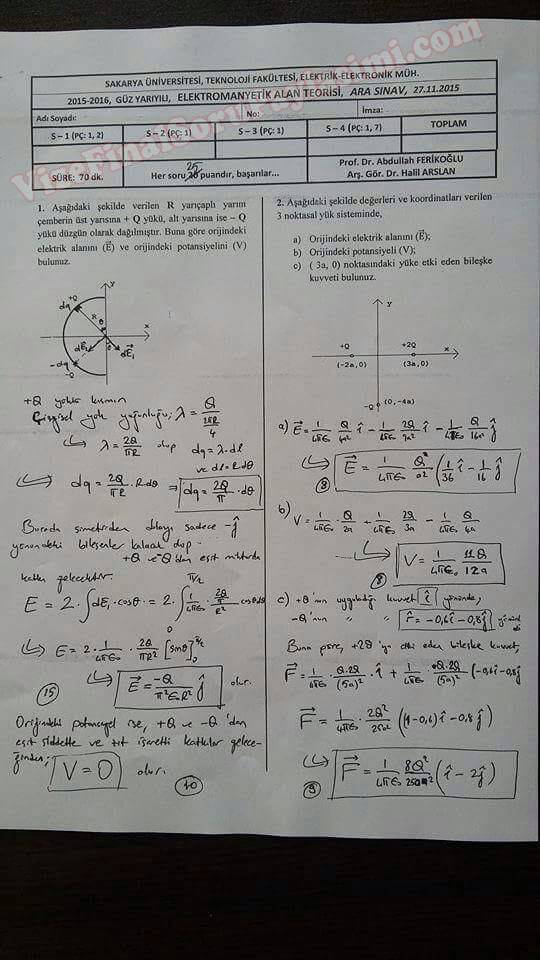 VizeFinalSoruveCevabimi.com
SAKARYA ÜNİVERSİTESİ, TEKNOLOJİ FAKÜLTESİ, ELEKTRİK-ELEKTRONİK MÜH.
2015-2016, GÜZ YARIYILI, ELEKTROMANYETİK ALAN TEORİSİ, ARA SINAV, 27.11.2015
Adı Soyadı: No: İmza:
S – 1 (PÇ: 1, 2) S – 2 (PÇ: 1) S – 3 (PÇ: 1) S – 4 (PÇ: 1, 7) TOPLAM
SÜRE: 70 dk. Her soru 25 puandır, başarılar... Prof. Dr. Abdullah FERİKOĞLU
Arş. Gör. Dr. Halil ARSLAN
1. Aşağıdaki şekilde verilen R yarıçaplı yarım
çemberin üst yarısına + Q yükü, alt yarısına ise – Q
yükü düzgün olarak dağılmıştır. Buna göre orijindeki
elektrik alanını (E⃗) ve orijindeki potansiyelini (V)
bulunuz.
y
+Q
dq
R
θ
x
dE⃗₁
dE⃗₁
-dq
-Q
+Q yüklü kısmın
Çizgisel yük yoğunluğu; λ = Q / (2πR/4)
λ = 2Q/πR olup dq = λ·dl
ve dl = R·dθ
dq = 2Q/πR · R·dθ ⇒ dq = 2Q/π · dθ
Burada simetriden dolayı sadece -ĵ
yönündeki bileşenler kalacak olup
+Q ve -Q'dan eşit miktarda
katkı gelecektir.
E = 2·∫dE₁·cosθ = 2·∫₀^(π/2) 1/4πε₀ · (2Q/π)/R² cosθ dθ
E = 2·1/4πε₀ · 2Q/πR² [sinθ]₀^(π/2)
15
E⃗ = -Q/π²ε₀R² ĵ olur.
Orijindeki potansiyel ise, +Q ve -Q'dan
eşit şiddette ve zıt işaretli katkılar gelece-
ğinden;
V = 0 olur.
10
2. Aşağıdaki şekilde değerleri ve koordinatları verilen
3 noktasal yük sisteminde,
a) Orijindeki elektrik alanı (E⃗);
b) Orijindeki potansiyeli (V);
c) ( 3a, 0) noktasındaki yüke etki eden bileşke
kuvveti bulunuz.
y
+Q +2Q x
(-2a, 0) (3a, 0)
-Q (0, -4a)
a) E⃗ = 1/4πε₀ Q/4a² î - 1/4πε₀ 2Q/9a² î - 1/4πε₀ Q/16a² ĵ
8
E⃗ = 1/4πε₀ Q/a² (1/36 î - 1/16 ĵ
b)
V = 1/4πε₀ · Q/2a + 1/4πε₀ 2Q/3a - 1/4πε₀ Q/4a
8
V = 1/4πε₀ 11Q/12a
c) +Q'nun uyguladığı kuvvet î yönünde,
-Q'nun " " r̂ = -0,6î - 0,8ĵ yönünde
Buna göre, +2Q'ya etki eden bileşke kuvvet,
F⃗ = 1/4πε₀ · Q·2Q/(5a)² · î + 1/4πε₀ Q·2Q/(5a)² (-0,6î - 0,8ĵ
F⃗ = 1/4πε₀ · 2Q²/25a² ((1-0,6)î - 0,8ĵ)
9
F⃗ = 1/4πε₀ 8Q²/250a² (î - 2ĵ)